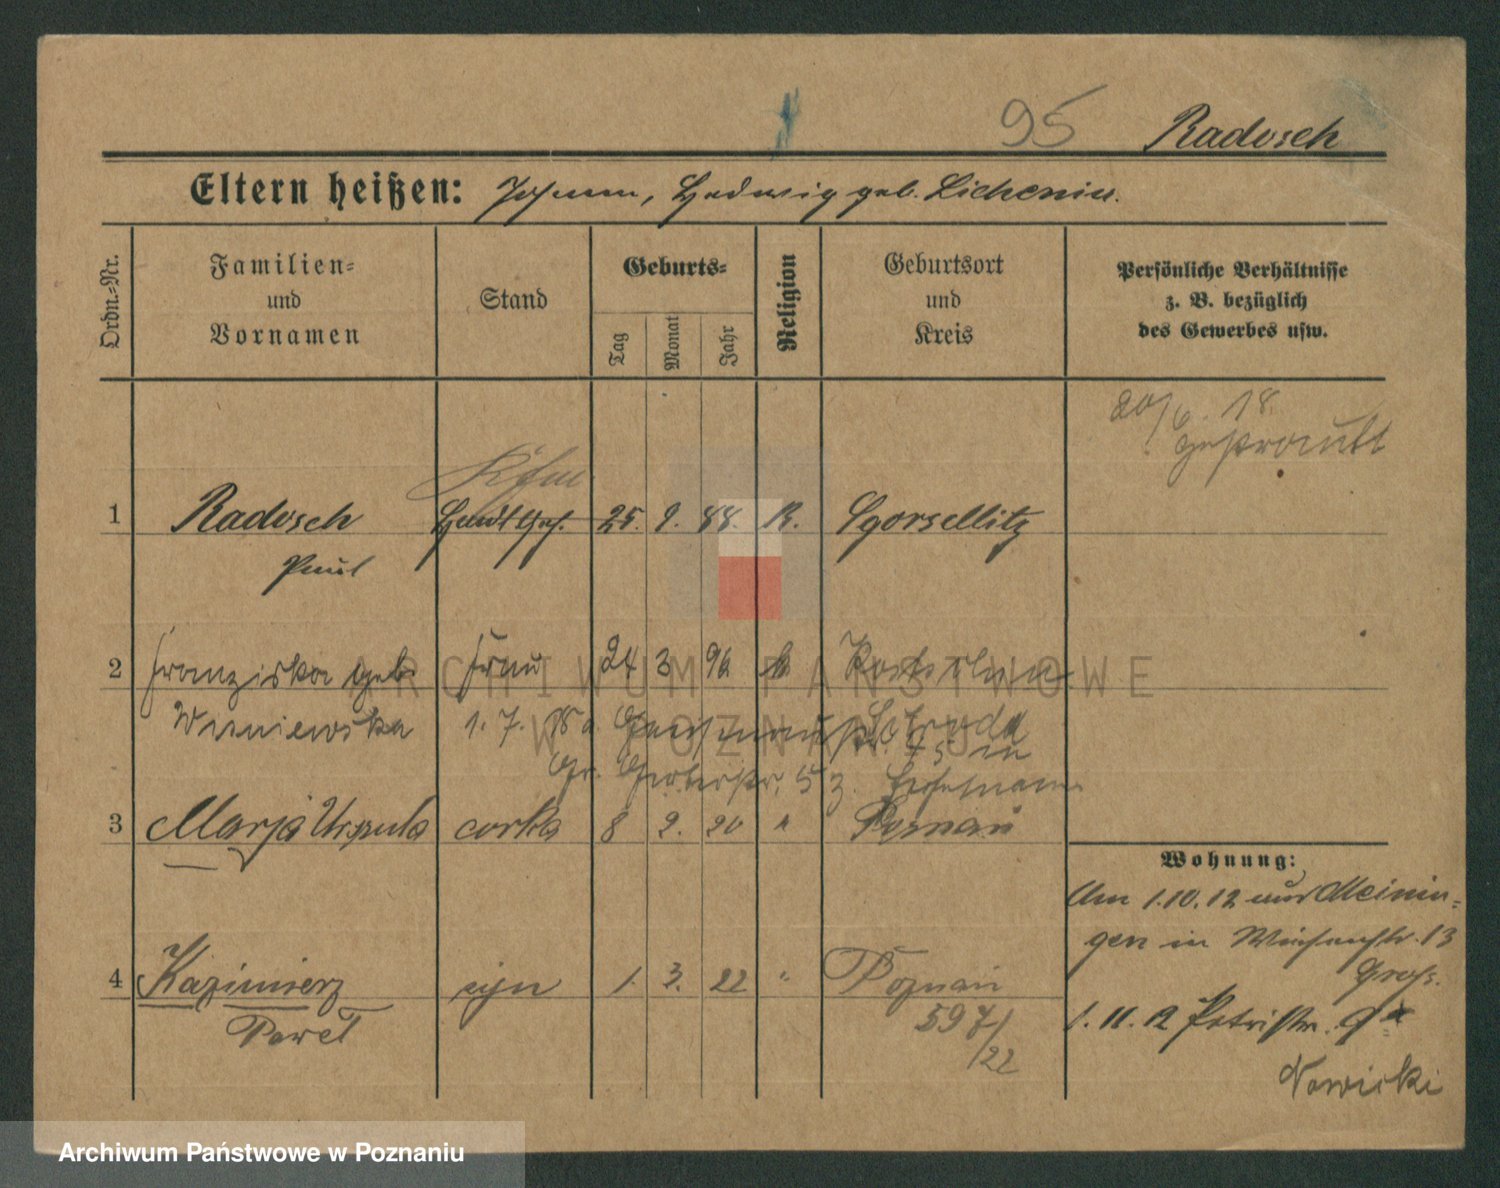 95 Radosch
Eltern heißen: Johann, Hedwig geb. Lichenin.
Ordn.=Nr.
Familien=
und
Vornamen
Stand
Geburts=
Tag
Monat
Jahr
Religion
Geburtsort
und
Kreis
Persönliche Verhältnisse
z. B. bezüglich
des Gewerbes usw.
20/6. 18
Kfm
1 Radosch Handl Geh. 25. 9. 88. K. Sgorsellitz
Paul
2 Franziska geb. Frau 24 3 96 k
Wisniewska 1. 7. 18 a. Schroda
Gr. Gerberstr. 53.
3 Marja Urszula corka 8 2. 20 " Poznań
Wohnung:
Am 1.10.12 aus Meinin=
gen in 13
4 Kazimierz syn 1. 3. 22 " Poznań
Paweł 597/22
1. 11. 12 Petristr. 9
Nowicki
ARCHIWUM PAŃSTWOWE
W POZNANIU
Archiwum Państwowe w Poznaniu